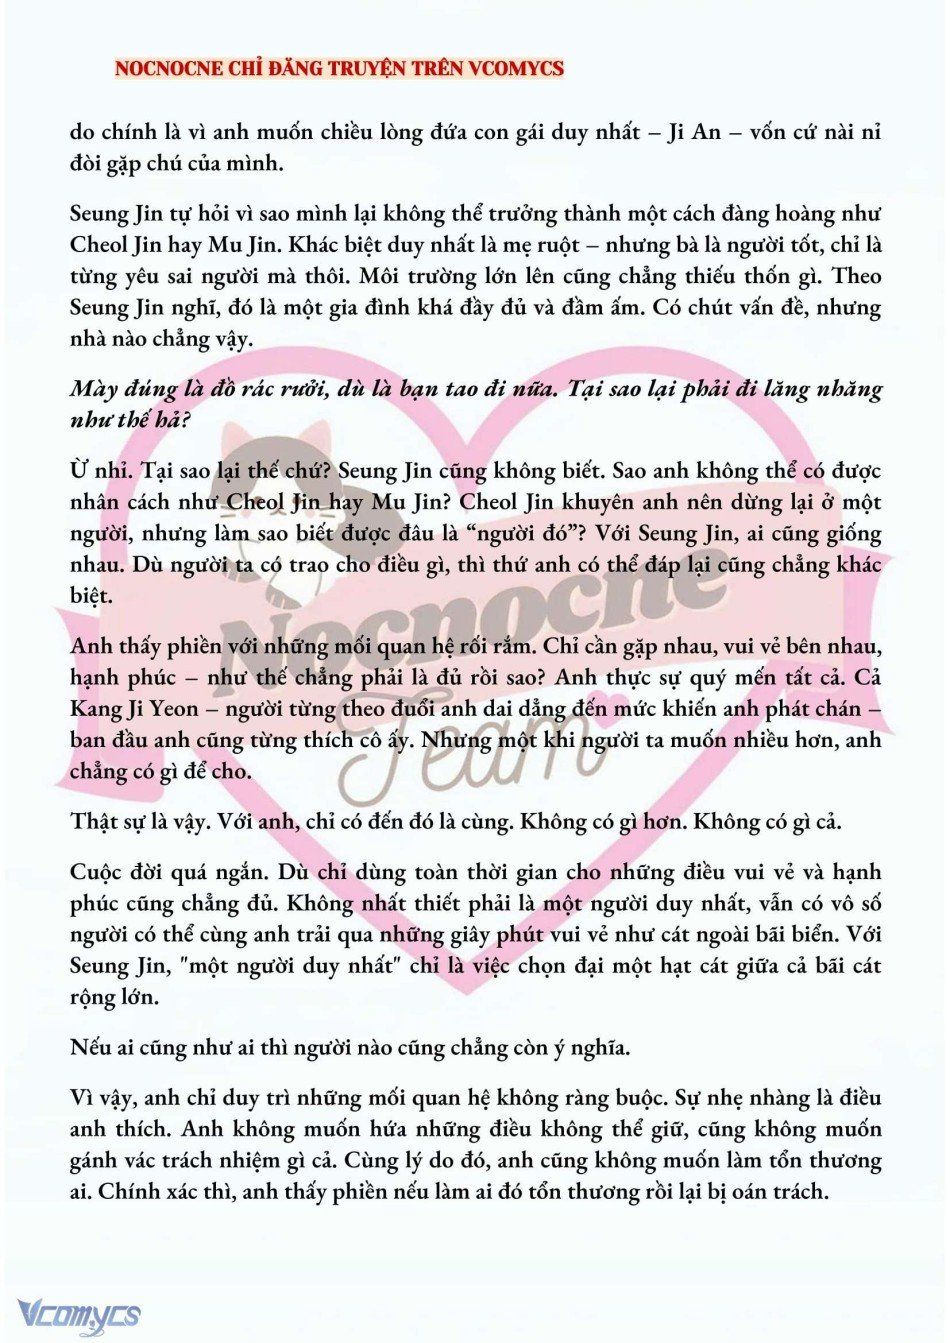 NOCNOCNE CHỈ ĐĂNG TRUYỆN TRÊN VCOMYCS
do chính là vì anh muốn chiều lòng đứa con gái duy nhất – Ji An – vốn cứ nài nỉ
đòi gặp chú của mình.
Seung Jin tự hỏi vì sao mình lại không thể trưởng thành một cách đàng hoàng như
Cheol Jin hay Mu Jin. Khác biệt duy nhất là mẹ ruột – nhưng bà là người tốt, chỉ là
từng yêu sai người mà thôi. Môi trường lớn lên cũng chẳng thiếu thốn gì. Theo
Seung Jin nghĩ, đó là một gia đình khá đầy đủ và đầm ấm. Có chút vấn đề, nhưng
nhà nào chẳng vậy.
Mày đúng là đồ rác rưởi, dù là bạn tao đi nữa. Tại sao lại phải đi lăng nhăng
như thế hả?
Ừ nhỉ. Tại sao lại thế chứ? Seung Jin cũng không biết. Sao anh không thể có được
nhân cách như Cheol Jin hay Mu Jin? Cheol Jin khuyên anh nên dừng lại ở một
người, nhưng làm sao biết được đâu là “người đó”? Với Seung Jin, ai cũng giống
nhau. Dù người ta có trao cho điều gì, thì thứ anh có thể đáp lại cũng chẳng khác
biệt.
Anh thấy phiền với những mối quan hệ rối rắm. Chỉ cần gặp nhau, vui vẻ bên nhau,
hạnh phúc – như thế chẳng phải là đủ rồi sao? Anh thực sự quý mến tất cả. Cả
Kang Ji Yeon – người từng theo đuổi anh dai dẳng đến mức khiến anh phát chán –
ban đầu anh cũng từng thích cô ấy. Nhưng một khi người ta muốn nhiều hơn, anh
chẳng có gì để cho.
Thật sự là vậy. Với anh, chỉ có đến đó là cùng. Không có gì hơn. Không có gì cả.
Cuộc đời quá ngắn. Dù chỉ dùng toàn thời gian cho những điều vui vẻ và hạnh
phúc cũng chẳng đủ. Không nhất thiết phải là một người duy nhất, vẫn có vô số
người có thể cùng anh trải qua những giây phút vui vẻ như cát ngoài bãi biển. Với
Seung Jin, "một người duy nhất" chỉ là việc chọn đại một hạt cát giữa cả bãi cát
rộng lớn.
Nếu ai cũng như ai thì người nào cũng chẳng còn ý nghĩa.
Vì vậy, anh chỉ duy trì những mối quan hệ không ràng buộc. Sự nhẹ nhàng là điều
anh thích. Anh không muốn hứa những điều không thể giữ, cũng không muốn
gánh vác trách nhiệm gì cả. Cùng lý do đó, anh cũng không muốn làm tổn thương
ai. Chính xác thì, anh thấy phiền nếu làm ai đó tổn thương rồi lại bị oán trách.
Nocnocne
Team
Vcomycs